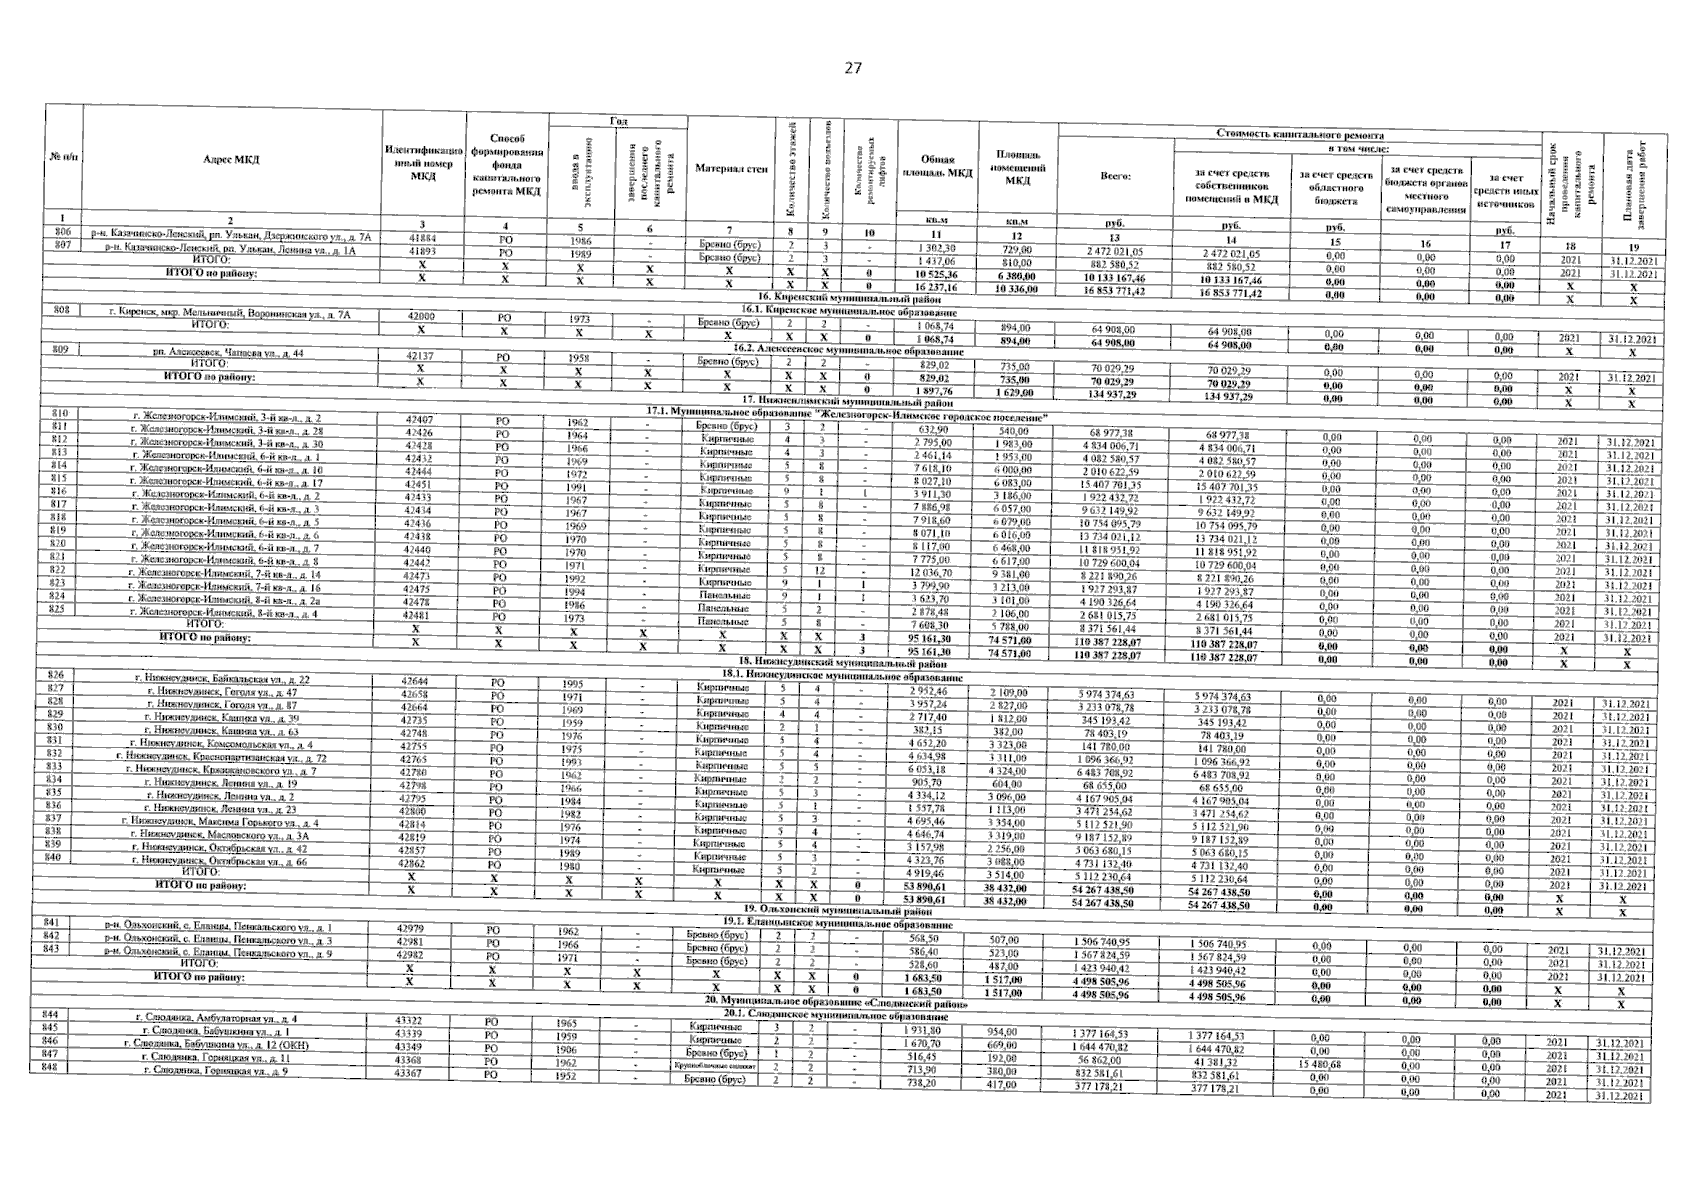 27
№ п/п | Адрес МКД | Идентификационный номер МКД | Способ формирования фонда капитального ремонта МКД | Год | ввода в эксплуатацию | завершения последнего капитального ремонта | Материал стен | Количество этажей | Количество подъездов | Количество ремонтируемых лифтов | Общая площадь МКД | Площадь помещений МКД | Стоимость капитального ремонта | Всего: | в том числе: | за счет средств собственников помещений в МКД | за счет средств областного бюджета | за счет средств бюджета органов местного самоуправления | за счет средств иных источников | Начальный срок проведения капитального ремонта | Плановая дата завершения работ
кв.м | кв.м | руб. | руб. | руб. | руб.
1 | 2 | 3 | 4 | 5 | 6 | 7 | 8 | 9 | 10 | 11 | 12 | 13 | 14 | 15 | 16 | 17 | 18 | 19
806 | р-н. Казачинско-Ленский, рп. Улькан, Дзержинского ул., д. 7А | 41884 | РО | 1986 | - | Бревно (брус) | 2 | 3 | - | 1 302,30 | 729,00 | 2 472 021,05 | 2 472 021,05 | 0,00 | 0,00 | 0,00 | 2021 | 31.12.2021
807 | р-н. Казачинско-Ленский, рп. Улькан, Ленина ул., д. 1А | 41893 | РО | 1989 | - | Бревно (брус) | 2 | 3 | - | 1 437,06 | 810,00 | 882 580,52 | 882 580,52 | 0,00 | 0,00 | 0,00 | 2021 | 31.12.2021
ИТОГО: | X | X | X | X | X | X | X | 0 | 10 525,36 | 6 380,00 | 10 133 167,46 | 10 133 167,46 | 0,00 | 0,00 | 0,00 | X | X
ИТОГО по району: | X | X | X | X | X | X | X | 0 | 16 237,16 | 10 336,00 | 16 853 771,42 | 16 853 771,42 | 0,00 | 0,00 | 0,00 | X | X
16. Киренский муниципальный район
16.1. Киренское муниципальное образование
808 | г. Киренск, мкр. Мельничный, Воронинская ул., д. 7А | 42000 | РО | 1973 | - | Бревно (брус) | 2 | 2 | - | 1 068,74 | 894,00 | 64 908,00 | 64 908,00 | 0,00 | 0,00 | 0,00 | 2021 | 31.12.2021
ИТОГО: | X | X | X | X | X | X | X | 0 | 1 068,74 | 894,00 | 64 908,00 | 64 908,00 | 0,00 | 0,00 | 0,00 | X | X
16.2. Алексеевское муниципальное образование
809 | рп. Алексеевск, Чапаева ул., д. 44 | 42137 | РО | 1958 | - | Бревно (брус) | 2 | 2 | - | 829,02 | 735,00 | 70 029,29 | 70 029,29 | 0,00 | 0,00 | 0,00 | 2021 | 31.12.2021
ИТОГО: | X | X | X | X | X | X | X | 0 | 829,02 | 735,00 | 70 029,29 | 70 029,29 | 0,00 | 0,00 | 0,00 | X | X
ИТОГО по району: | X | X | X | X | X | X | X | 0 | 1 897,76 | 1 629,00 | 134 937,29 | 134 937,29 | 0,00 | 0,00 | 0,00 | X | X
17. Нижнеилимский муниципальный район
17.1. Муниципальное образование "Железногорск-Илимское городское поселение"
810 | г. Железногорск-Илимский, 3-й кв-л., д. 2 | 42407 | РО | 1962 | - | Бревно (брус) | 3 | 2 | - | 632,90 | 540,00 | 68 977,38 | 68 977,38 | 0,00 | 0,00 | 0,00 | 2021 | 31.12.2021
811 | г. Железногорск-Илимский, 3-й кв-л., д. 28 | 42426 | РО | 1964 | - | Кирпичные | 4 | 3 | - | 2 795,00 | 1 983,00 | 4 834 006,71 | 4 834 006,71 | 0,00 | 0,00 | 0,00 | 2021 | 31.12.2021
812 | г. Железногорск-Илимский, 3-й кв-л., д. 30 | 42428 | РО | 1966 | - | Кирпичные | 4 | 3 | - | 2 461,14 | 1 953,00 | 4 082 580,57 | 4 082 580,57 | 0,00 | 0,00 | 0,00 | 2021 | 31.12.2021
813 | г. Железногорск-Илимский, 6-й кв-л., д. 1 | 42432 | РО | 1969 | - | Кирпичные | 5 | 8 | - | 7 618,10 | 6 000,00 | 2 010 622,59 | 2 010 622,59 | 0,00 | 0,00 | 0,00 | 2021 | 31.12.2021
814 | г. Железногорск-Илимский, 6-й кв-л., д. 10 | 42444 | РО | 1972 | - | Кирпичные | 5 | 8 | - | 8 027,10 | 6 083,00 | 15 407 701,35 | 15 407 701,35 | 0,00 | 0,00 | 0,00 | 2021 | 31.12.2021
815 | г. Железногорск-Илимский, 6-й кв-л., д. 17 | 42451 | РО | 1991 | - | Кирпичные | 9 | 1 | 1 | 3 911,30 | 3 186,00 | 1 922 432,72 | 1 922 432,72 | 0,00 | 0,00 | 0,00 | 2021 | 31.12.2021
816 | г. Железногорск-Илимский, 6-й кв-л., д. 2 | 42433 | РО | 1967 | - | Кирпичные | 5 | 8 | - | 7 886,98 | 6 057,00 | 9 632 149,92 | 9 632 149,92 | 0,00 | 0,00 | 0,00 | 2021 | 31.12.2021
817 | г. Железногорск-Илимский, 6-й кв-л., д. 3 | 42434 | РО | 1967 | - | Кирпичные | 5 | 8 | - | 7 918,60 | 6 079,00 | 10 754 095,79 | 10 754 095,79 | 0,00 | 0,00 | 0,00 | 2021 | 31.12.2021
818 | г. Железногорск-Илимский, 6-й кв-л., д. 5 | 42436 | РО | 1969 | - | Кирпичные | 5 | 8 | - | 8 071,10 | 6 016,00 | 13 734 021,12 | 13 734 021,12 | 0,00 | 0,00 | 0,00 | 2021 | 31.12.2021
819 | г. Железногорск-Илимский, 6-й кв-л., д. 6 | 42438 | РО | 1970 | - | Кирпичные | 5 | 8 | - | 8 117,00 | 6 468,00 | 11 818 951,92 | 11 818 951,92 | 0,00 | 0,00 | 0,00 | 2021 | 31.12.2021
820 | г. Железногорск-Илимский, 6-й кв-л., д. 7 | 42440 | РО | 1970 | - | Кирпичные | 5 | 8 | - | 7 775,00 | 6 617,00 | 10 729 600,04 | 10 729 600,04 | 0,00 | 0,00 | 0,00 | 2021 | 31.12.2021
821 | г. Железногорск-Илимский, 6-й кв-л., д. 8 | 42442 | РО | 1971 | - | Кирпичные | 5 | 12 | - | 12 036,70 | 9 381,00 | 8 221 890,26 | 8 221 890,26 | 0,00 | 0,00 | 0,00 | 2021 | 31.12.2021
822 | г. Железногорск-Илимский, 7-й кв-л., д. 14 | 42473 | РО | 1992 | - | Кирпичные | 9 | 1 | 1 | 3 799,90 | 3 213,00 | 1 927 293,87 | 1 927 293,87 | 0,00 | 0,00 | 0,00 | 2021 | 31.12.2021
823 | г. Железногорск-Илимский, 7-й кв-л., д. 16 | 42475 | РО | 1994 | - | Панельные | 9 | 1 | 1 | 3 623,70 | 3 101,00 | 4 190 326,64 | 4 190 326,64 | 0,00 | 0,00 | 0,00 | 2021 | 31.12.2021
824 | г. Железногорск-Илимский, 8-й кв-л., д. 2а | 42478 | РО | 1986 | - | Панельные | 5 | 2 | - | 2 878,48 | 2 106,00 | 2 681 015,75 | 2 681 015,75 | 0,00 | 0,00 | 0,00 | 2021 | 31.12.2021
825 | г. Железногорск-Илимский, 8-й кв-л., д. 4 | 42481 | РО | 1973 | - | Панельные | 5 | 8 | - | 7 608,30 | 5 788,00 | 8 371 561,44 | 8 371 561,44 | 0,00 | 0,00 | 0,00 | 2021 | 31.12.2021
ИТОГО: | X | X | X | X | X | X | X | 3 | 95 161,30 | 74 571,00 | 110 387 228,07 | 110 387 228,07 | 0,00 | 0,00 | 0,00 | X | X
ИТОГО по району: | X | X | X | X | X | X | X | 3 | 95 161,30 | 74 571,00 | 110 387 228,07 | 110 387 228,07 | 0,00 | 0,00 | 0,00 | X | X
18. Нижнеудинский муниципальный район
18.1. Нижнеудинское муниципальное образование
826 | г. Нижнеудинск, Байкальская ул., д. 22 | 42644 | РО | 1995 | - | Кирпичные | 5 | 4 | - | 2 952,46 | 2 109,00 | 5 974 374,63 | 5 974 374,63 | 0,00 | 0,00 | 0,00 | 2021 | 31.12.2021
827 | г. Нижнеудинск, Гоголя ул., д. 47 | 42658 | РО | 1971 | - | Кирпичные | 5 | 4 | - | 3 957,24 | 2 827,00 | 3 233 078,78 | 3 233 078,78 | 0,00 | 0,00 | 0,00 | 2021 | 31.12.2021
828 | г. Нижнеудинск, Гоголя ул., д. 87 | 42664 | РО | 1969 | - | Кирпичные | 4 | 4 | - | 2 717,40 | 1 812,00 | 345 193,42 | 345 193,42 | 0,00 | 0,00 | 0,00 | 2021 | 31.12.2021
829 | г. Нижнеудинск, Кашика ул., д. 39 | 42735 | РО | 1959 | - | Кирпичные | 2 | 1 | - | 382,15 | 382,00 | 78 403,19 | 78 403,19 | 0,00 | 0,00 | 0,00 | 2021 | 31.12.2021
830 | г. Нижнеудинск, Кашика ул., д. 63 | 42748 | РО | 1976 | - | Кирпичные | 5 | 4 | - | 4 652,20 | 3 323,00 | 141 780,00 | 141 780,00 | 0,00 | 0,00 | 0,00 | 2021 | 31.12.2021
831 | г. Нижнеудинск, Комсомольская ул., д. 4 | 42755 | РО | 1975 | - | Кирпичные | 5 | 4 | - | 4 634,98 | 3 311,00 | 1 096 366,92 | 1 096 366,92 | 0,00 | 0,00 | 0,00 | 2021 | 31.12.2021
832 | г. Нижнеудинск, Краснопартизанская ул., д. 72 | 42765 | РО | 1993 | - | Кирпичные | 5 | 5 | - | 6 053,18 | 4 324,00 | 6 483 708,92 | 6 483 708,92 | 0,00 | 0,00 | 0,00 | 2021 | 31.12.2021
833 | г. Нижнеудинск, Кржижановского ул., д. 7 | 42780 | РО | 1962 | - | Кирпичные | 2 | 2 | - | 905,70 | 604,00 | 68 655,00 | 68 655,00 | 0,00 | 0,00 | 0,00 | 2021 | 31.12.2021
834 | г. Нижнеудинск, Ленина ул., д. 19 | 42798 | РО | 1966 | - | Кирпичные | 5 | 3 | - | 4 334,12 | 3 096,00 | 4 167 905,04 | 4 167 905,04 | 0,00 | 0,00 | 0,00 | 2021 | 31.12.2021
835 | г. Нижнеудинск, Ленина ул., д. 2 | 42795 | РО | 1984 | - | Кирпичные | 5 | 1 | - | 1 557,78 | 1 113,00 | 3 471 254,62 | 3 471 254,62 | 0,00 | 0,00 | 0,00 | 2021 | 31.12.2021
836 | г. Нижнеудинск, Ленина ул., д. 23 | 42800 | РО | 1982 | - | Кирпичные | 5 | 3 | - | 4 695,46 | 3 354,00 | 5 112 521,90 | 5 112 521,90 | 0,00 | 0,00 | 0,00 | 2021 | 31.12.2021
837 | г. Нижнеудинск, Максима Горького ул., д. 4 | 42814 | РО | 1976 | - | Кирпичные | 5 | 4 | - | 4 646,74 | 3 319,00 | 9 187 152,89 | 9 187 152,89 | 0,00 | 0,00 | 0,00 | 2021 | 31.12.2021
838 | г. Нижнеудинск, Масловского ул., д. 3А | 42819 | РО | 1974 | - | Кирпичные | 5 | 4 | - | 3 157,98 | 2 256,00 | 5 063 680,15 | 5 063 680,15 | 0,00 | 0,00 | 0,00 | 2021 | 31.12.2021
839 | г. Нижнеудинск, Октябрьская ул., д. 42 | 42857 | РО | 1989 | - | Кирпичные | 5 | 3 | - | 4 323,76 | 3 088,00 | 4 731 132,40 | 4 731 132,40 | 0,00 | 0,00 | 0,00 | 2021 | 31.12.2021
840 | г. Нижнеудинск, Октябрьская ул., д. 66 | 42862 | РО | 1980 | - | Кирпичные | 5 | 2 | - | 4 919,46 | 3 514,00 | 5 112 230,64 | 5 112 230,64 | 0,00 | 0,00 | 0,00 | 2021 | 31.12.2021
ИТОГО: | X | X | X | X | X | X | X | 0 | 53 890,61 | 38 432,00 | 54 267 438,50 | 54 267 438,50 | 0,00 | 0,00 | 0,00 | X | X
ИТОГО по району: | X | X | X | X | X | X | X | 0 | 53 890,61 | 38 432,00 | 54 267 438,50 | 54 267 438,50 | 0,00 | 0,00 | 0,00 | X | X
19. Ольхонский муниципальный район
19.1. Еланцынское муниципальное образование
841 | р-н. Ольхонский, с. Еланцы, Пенкальского ул., д. 1 | 42979 | РО | 1962 | - | Бревно (брус) | 2 | 2 | - | 568,50 | 507,00 | 1 506 740,95 | 1 506 740,95 | 0,00 | 0,00 | 0,00 | 2021 | 31.12.2021
842 | р-н. Ольхонский, с. Еланцы, Пенкальского ул., д. 3 | 42981 | РО | 1966 | - | Бревно (брус) | 2 | 3 | - | 586,40 | 523,00 | 1 567 824,59 | 1 567 824,59 | 0,00 | 0,00 | 0,00 | 2021 | 31.12.2021
843 | р-н. Ольхонский, с. Еланцы, Пенкальского ул., д. 9 | 42982 | РО | 1971 | - | Бревно (брус) | 2 | 2 | - | 528,60 | 487,00 | 1 423 940,42 | 1 423 940,42 | 0,00 | 0,00 | 0,00 | 2021 | 31.12.2021
ИТОГО: | X | X | X | X | X | X | X | 0 | 1 683,50 | 1 517,00 | 4 498 505,96 | 4 498 505,96 | 0,00 | 0,00 | 0,00 | X | X
ИТОГО по району: | X | X | X | X | X | X | X | 0 | 1 683,50 | 1 517,00 | 4 498 505,96 | 4 498 505,96 | 0,00 | 0,00 | 0,00 | X | X
20. Муниципальное образование «Слюдянский район»
20.1. Слюдянское муниципальное образование
844 | г. Слюдянка, Амбулаторная ул., д. 4 | 43322 | РО | 1965 | - | Кирпичные | 3 | 2 | - | 1 931,80 | 954,00 | 1 377 164,53 | 1 377 164,53 | 0,00 | 0,00 | 0,00 | 2021 | 31.12.2021
845 | г. Слюдянка, Бабушкина ул., д. 1 | 43339 | РО | 1959 | - | Кирпичные | 2 | 2 | - | 1 670,70 | 669,00 | 1 644 470,82 | 1 644 470,82 | 0,00 | 0,00 | 0,00 | 2021 | 31.12.2021
846 | г. Слюдянка, Бабушкина ул., д. 12 (ОКН) | 43349 | РО | 1906 | - | Бревно (брус) | 1 | 2 | - | 516,45 | 192,00 | 56 862,00 | 41 381,32 | 15 480,68 | 0,00 | 0,00 | 2021 | 31.12.2021
847 | г. Слюдянка, Горняцкая ул., д. 11 | 43368 | РО | 1962 | - | Крупноблочные силикат | 2 | 2 | - | 713,90 | 380,00 | 832 581,61 | 832 581,61 | 0,00 | 0,00 | 0,00 | 2021 | 31.12.2021
848 | г. Слюдянка, Горняцкая ул., д. 9 | 43367 | РО | 1952 | - | Бревно (брус) | 2 | 2 | - | 738,20 | 417,00 | 377 178,21 | 377 178,21 | 0,00 | 0,00 | 0,00 | 2021 | 31.12.2021